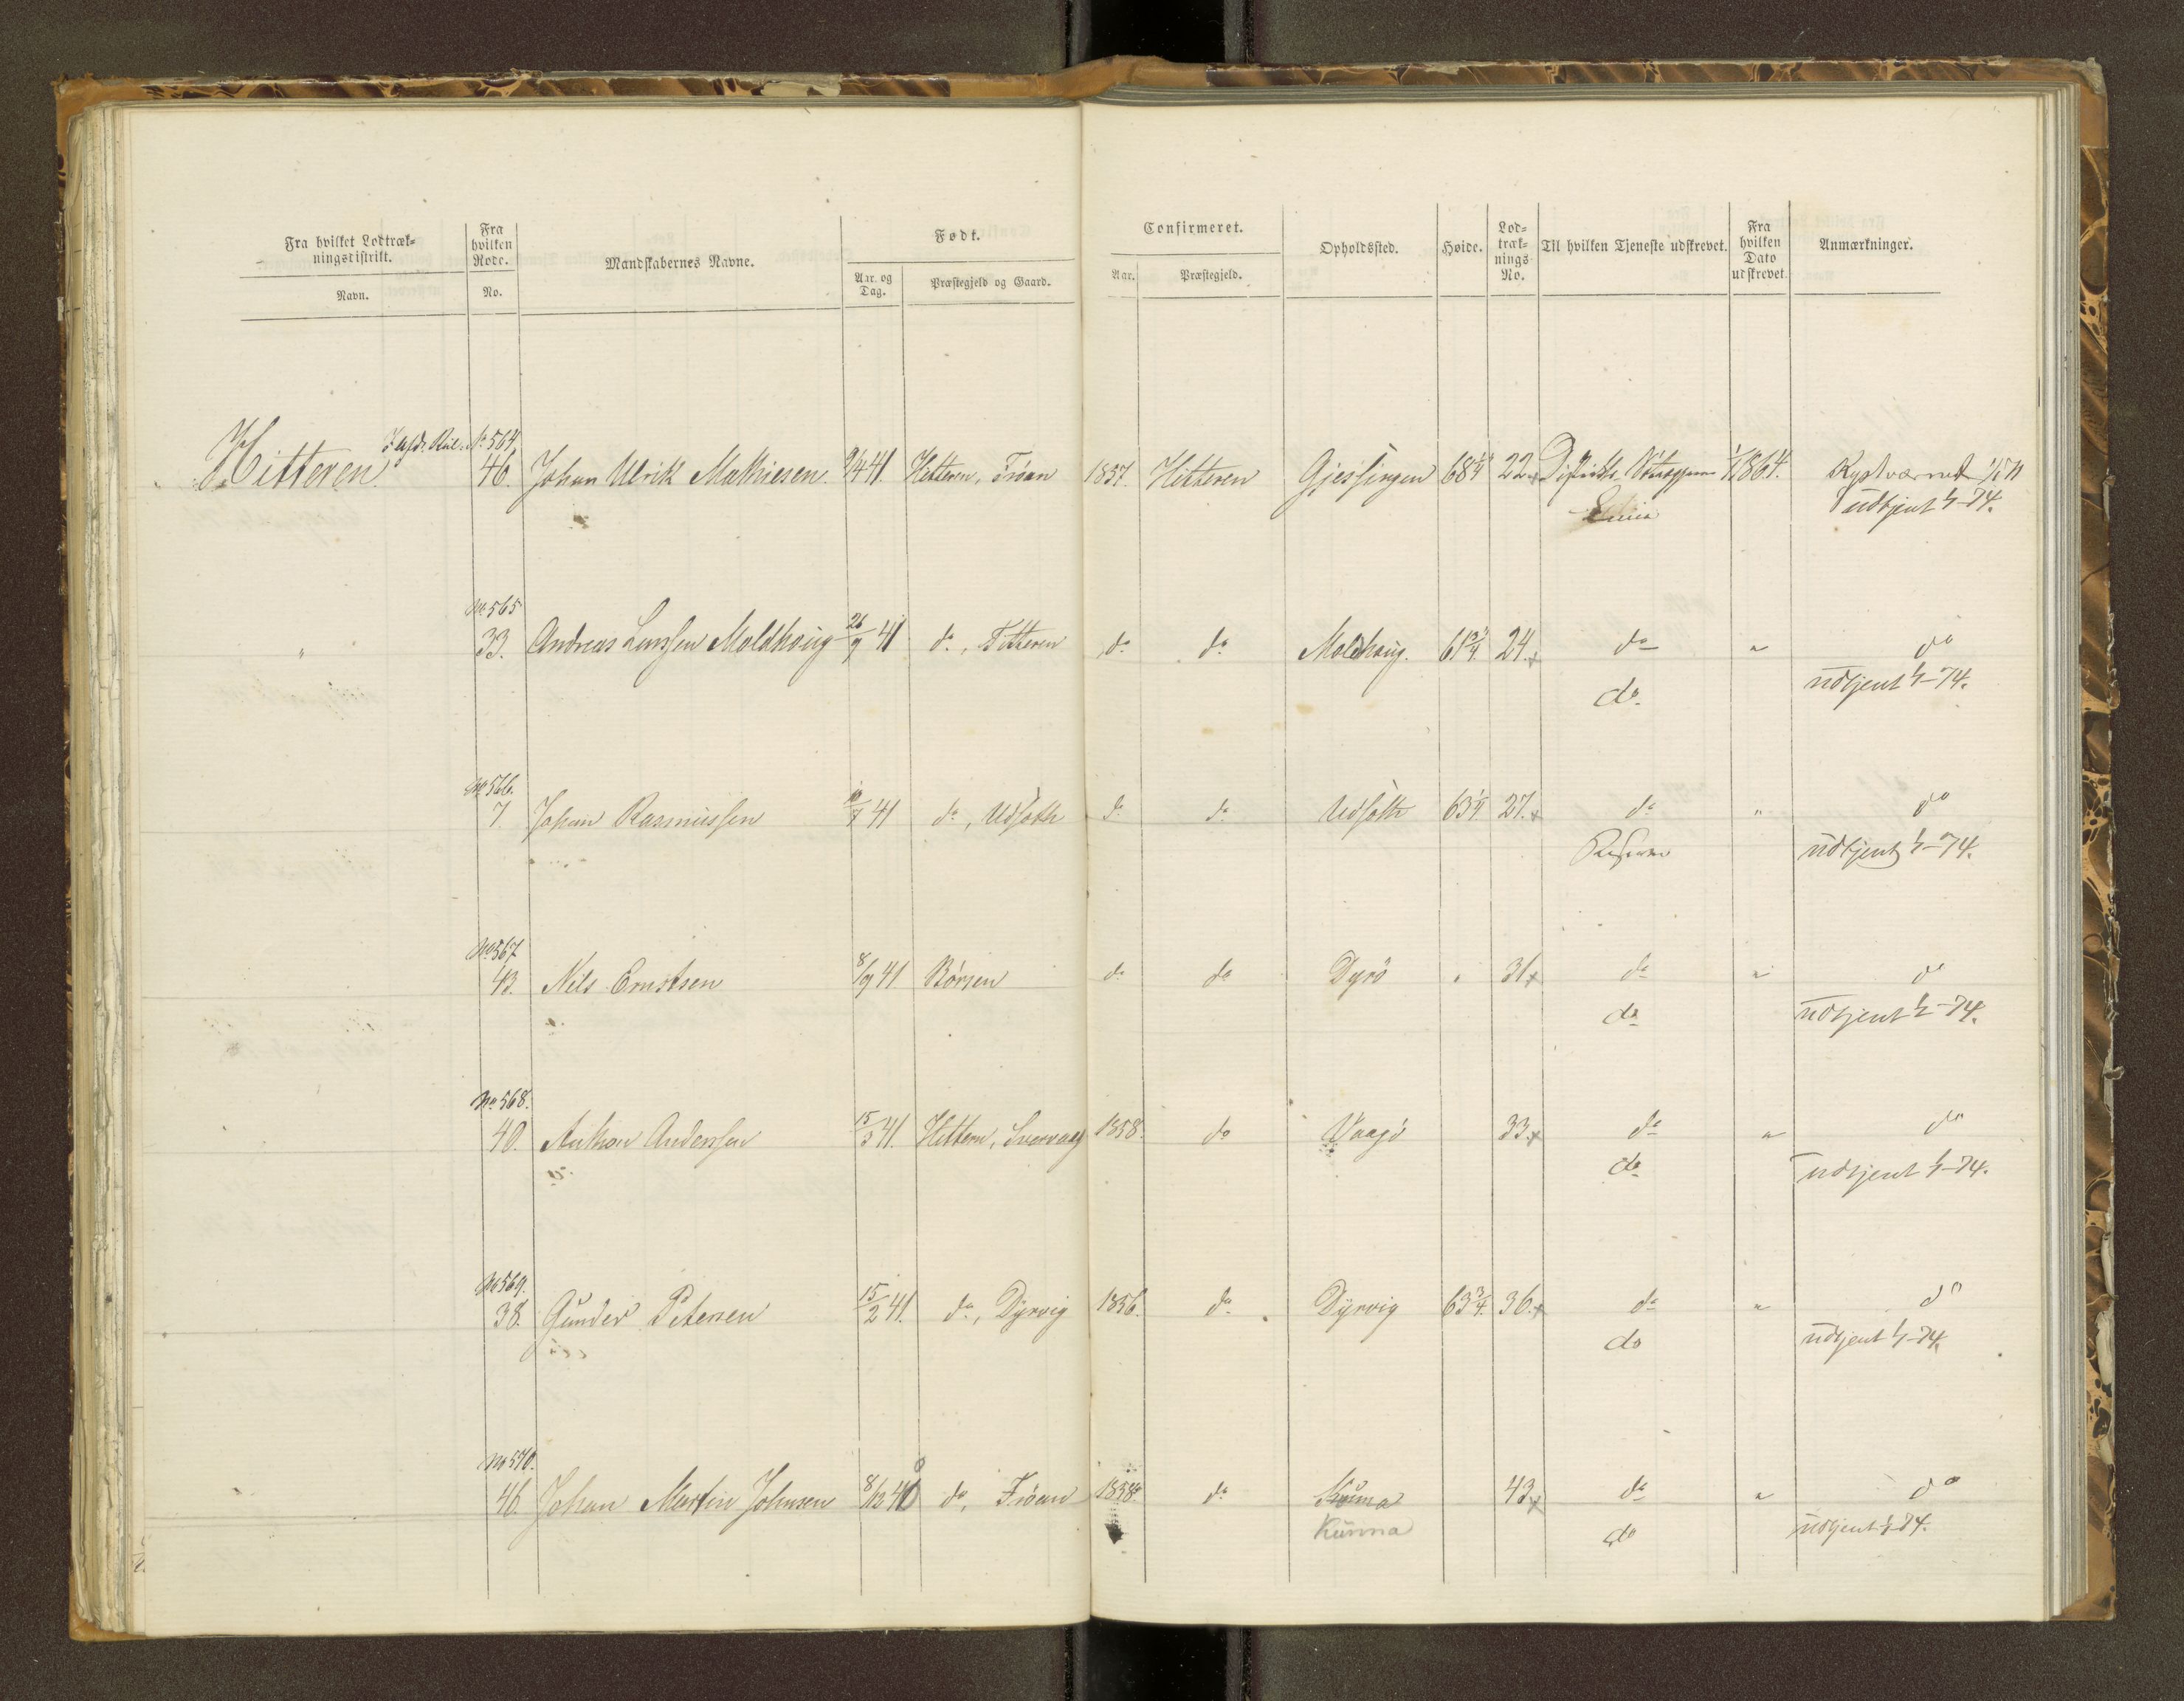 Fra hvilket Lodtræk-
ningsdistrikt.
Navn.
Fra
hvilken
Rode.
No.
Mandskabernes Navne.
Født.
Aar og
Dag.
Præstegjeld og Gaard.
Confirmeret.
Aar.
Præstegjeld.
Opholdssted.
Høide.
Lod-
træk-
nings
No.
Til hvilken Tjeneste udskrevet.
Fra
hvilken
Dato
udskrevet.
Anmærkninger.
No 564.
Hitteren 46. Johan Ulrik Mathiesen. 9/4 41. Hitteren, Fröan 1857. Hitteren Gjessingen 68 1/4" 22 Distrikts 1/1 1864. Kystværnet
udtjent 1/1-74.
No 565
" 33. Andreas Larssen Moldhaug 26/9 41 do, Fitteren do do Moldhaug. 61 3/4" 24. do " do
do udtjent 1/1-74.
No 566.
7. Johan Rasmussen 10/7 41 do, Udsæth do do Udsæth 63 1/4 27. do " do
Reserven udtjent 1/1-74.
No 567
43. Nils Ernstsen 8/9 41 Börsen do do Dyrö " 31 do " do
do udtjent 1/1-74.
No 568.
40. Anthon Anderssen 15/3 41. Hitteren, 1858. do Vaagö 33. do " do
do udtjent 1/1-74.
No 569.
38. Gunder Petersen 15/2 41. do, Dyrvig 1856. do Dyrvig 63 3/4" 36. do " do
do udtjent 1/1-74.
No 570.
46. Johan Martin Johnsen 8/12 40 do, Fröan 1858. do Kunna 43 do " do
Kunna do udtjent 1/1-74.